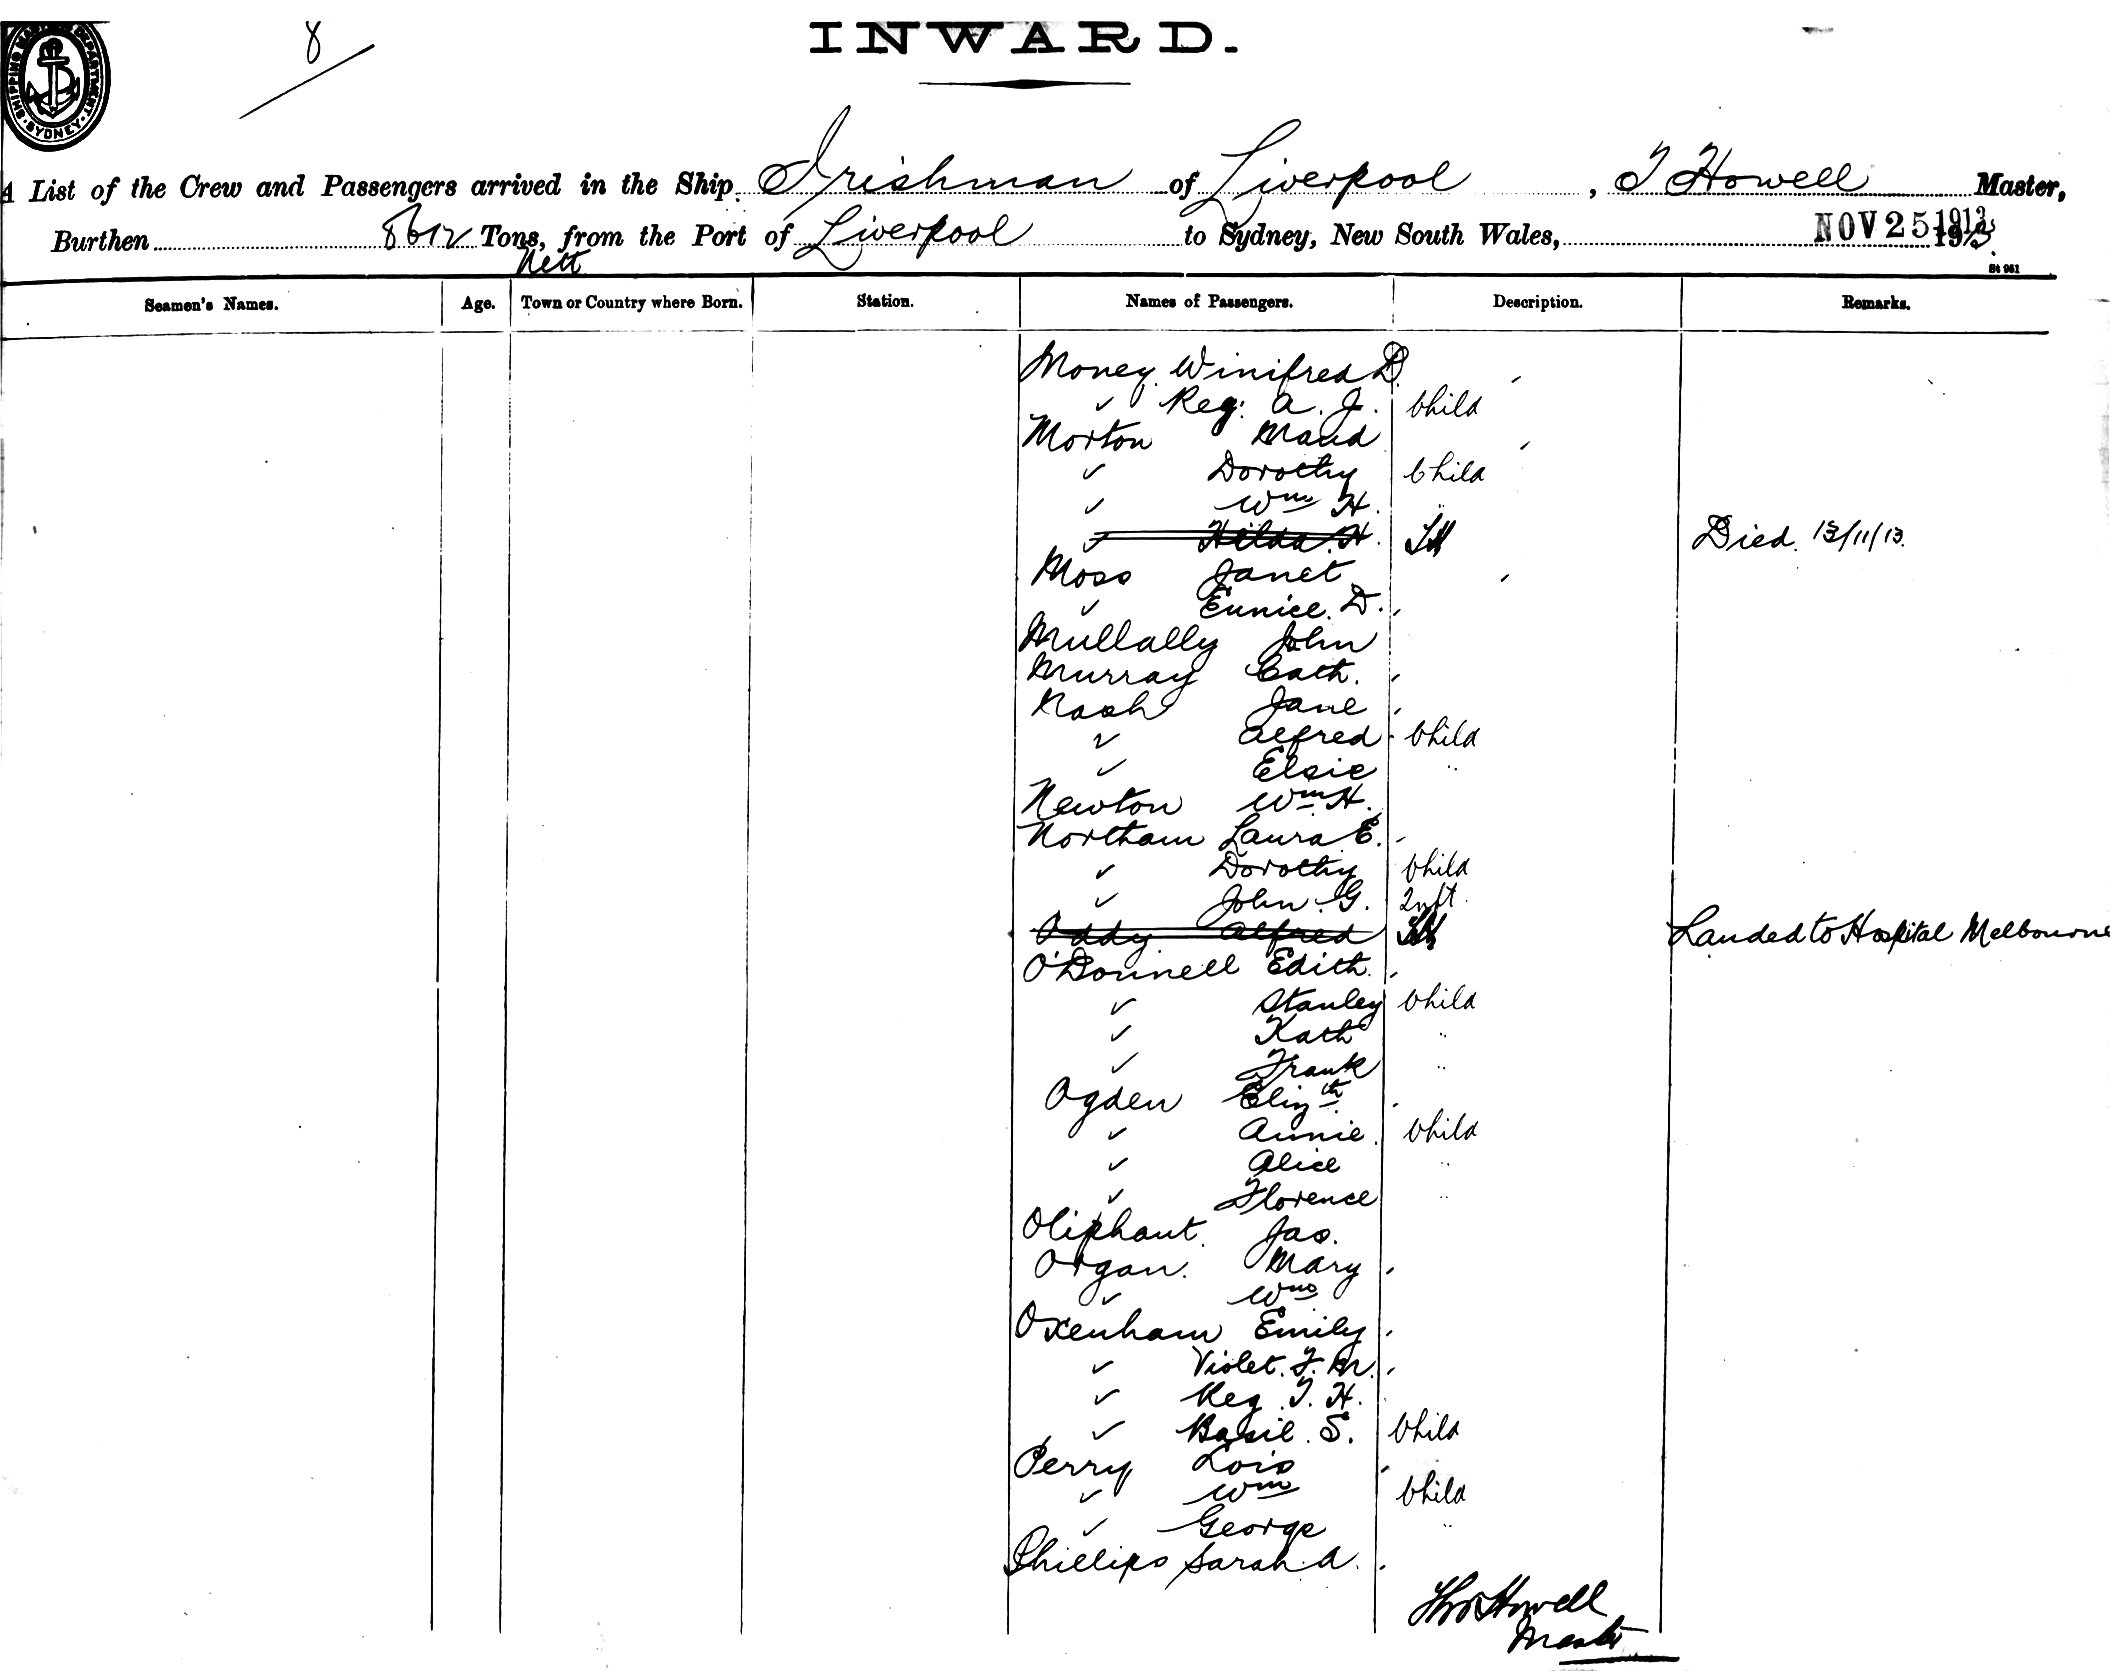 8
INWARD.
SHIPPING MASTER'S DEPARTMENT · SYDNEY ·
A List of the Crew and Passengers arrived in the Ship Irishman of Liverpool, T Howell Master,
Burthen 8612 Tons, from the Port of Liverpool to Sydney, New South Wales, NOV 25 1913
Nett
St 961
Seamen's Names. Age. Town or Country where Born. Station. Names of Passengers. Description. Remarks.
Money Winifred D.
✓ Reg: A. J. Child
Morton Maud
✓ Dorothy Child
✓ Wm H. "
✓ Hilda H. Died 13/11/13.
Moss Janet
✓ Eunice. D.
Mullally John
Murray Cath.
Nash Jane
✓ Alfred Child
✓ Elsie "
Newton Wm H.
Northam Laura E.
✓ Dorothy Child
✓ John. G. Inft.
Oddy Alfred Landed to Hospital Melbourne
O'Donnell Edith
✓ Stanley Child
✓ Kath "
✓ Frank "
Ogden Elizth
✓ Annie Child
✓ Alice "
✓ Florence "
Oliphant Jas.
Organ. Mary
✓ Wm
Oxenham Emily
✓ Violet. F. M.
✓ Reg T. H.
✓ Basil. S. Child
Perry Lois
✓ Wm Child
✓ George "
Phillips Sarah A.
Thos Howell
Master